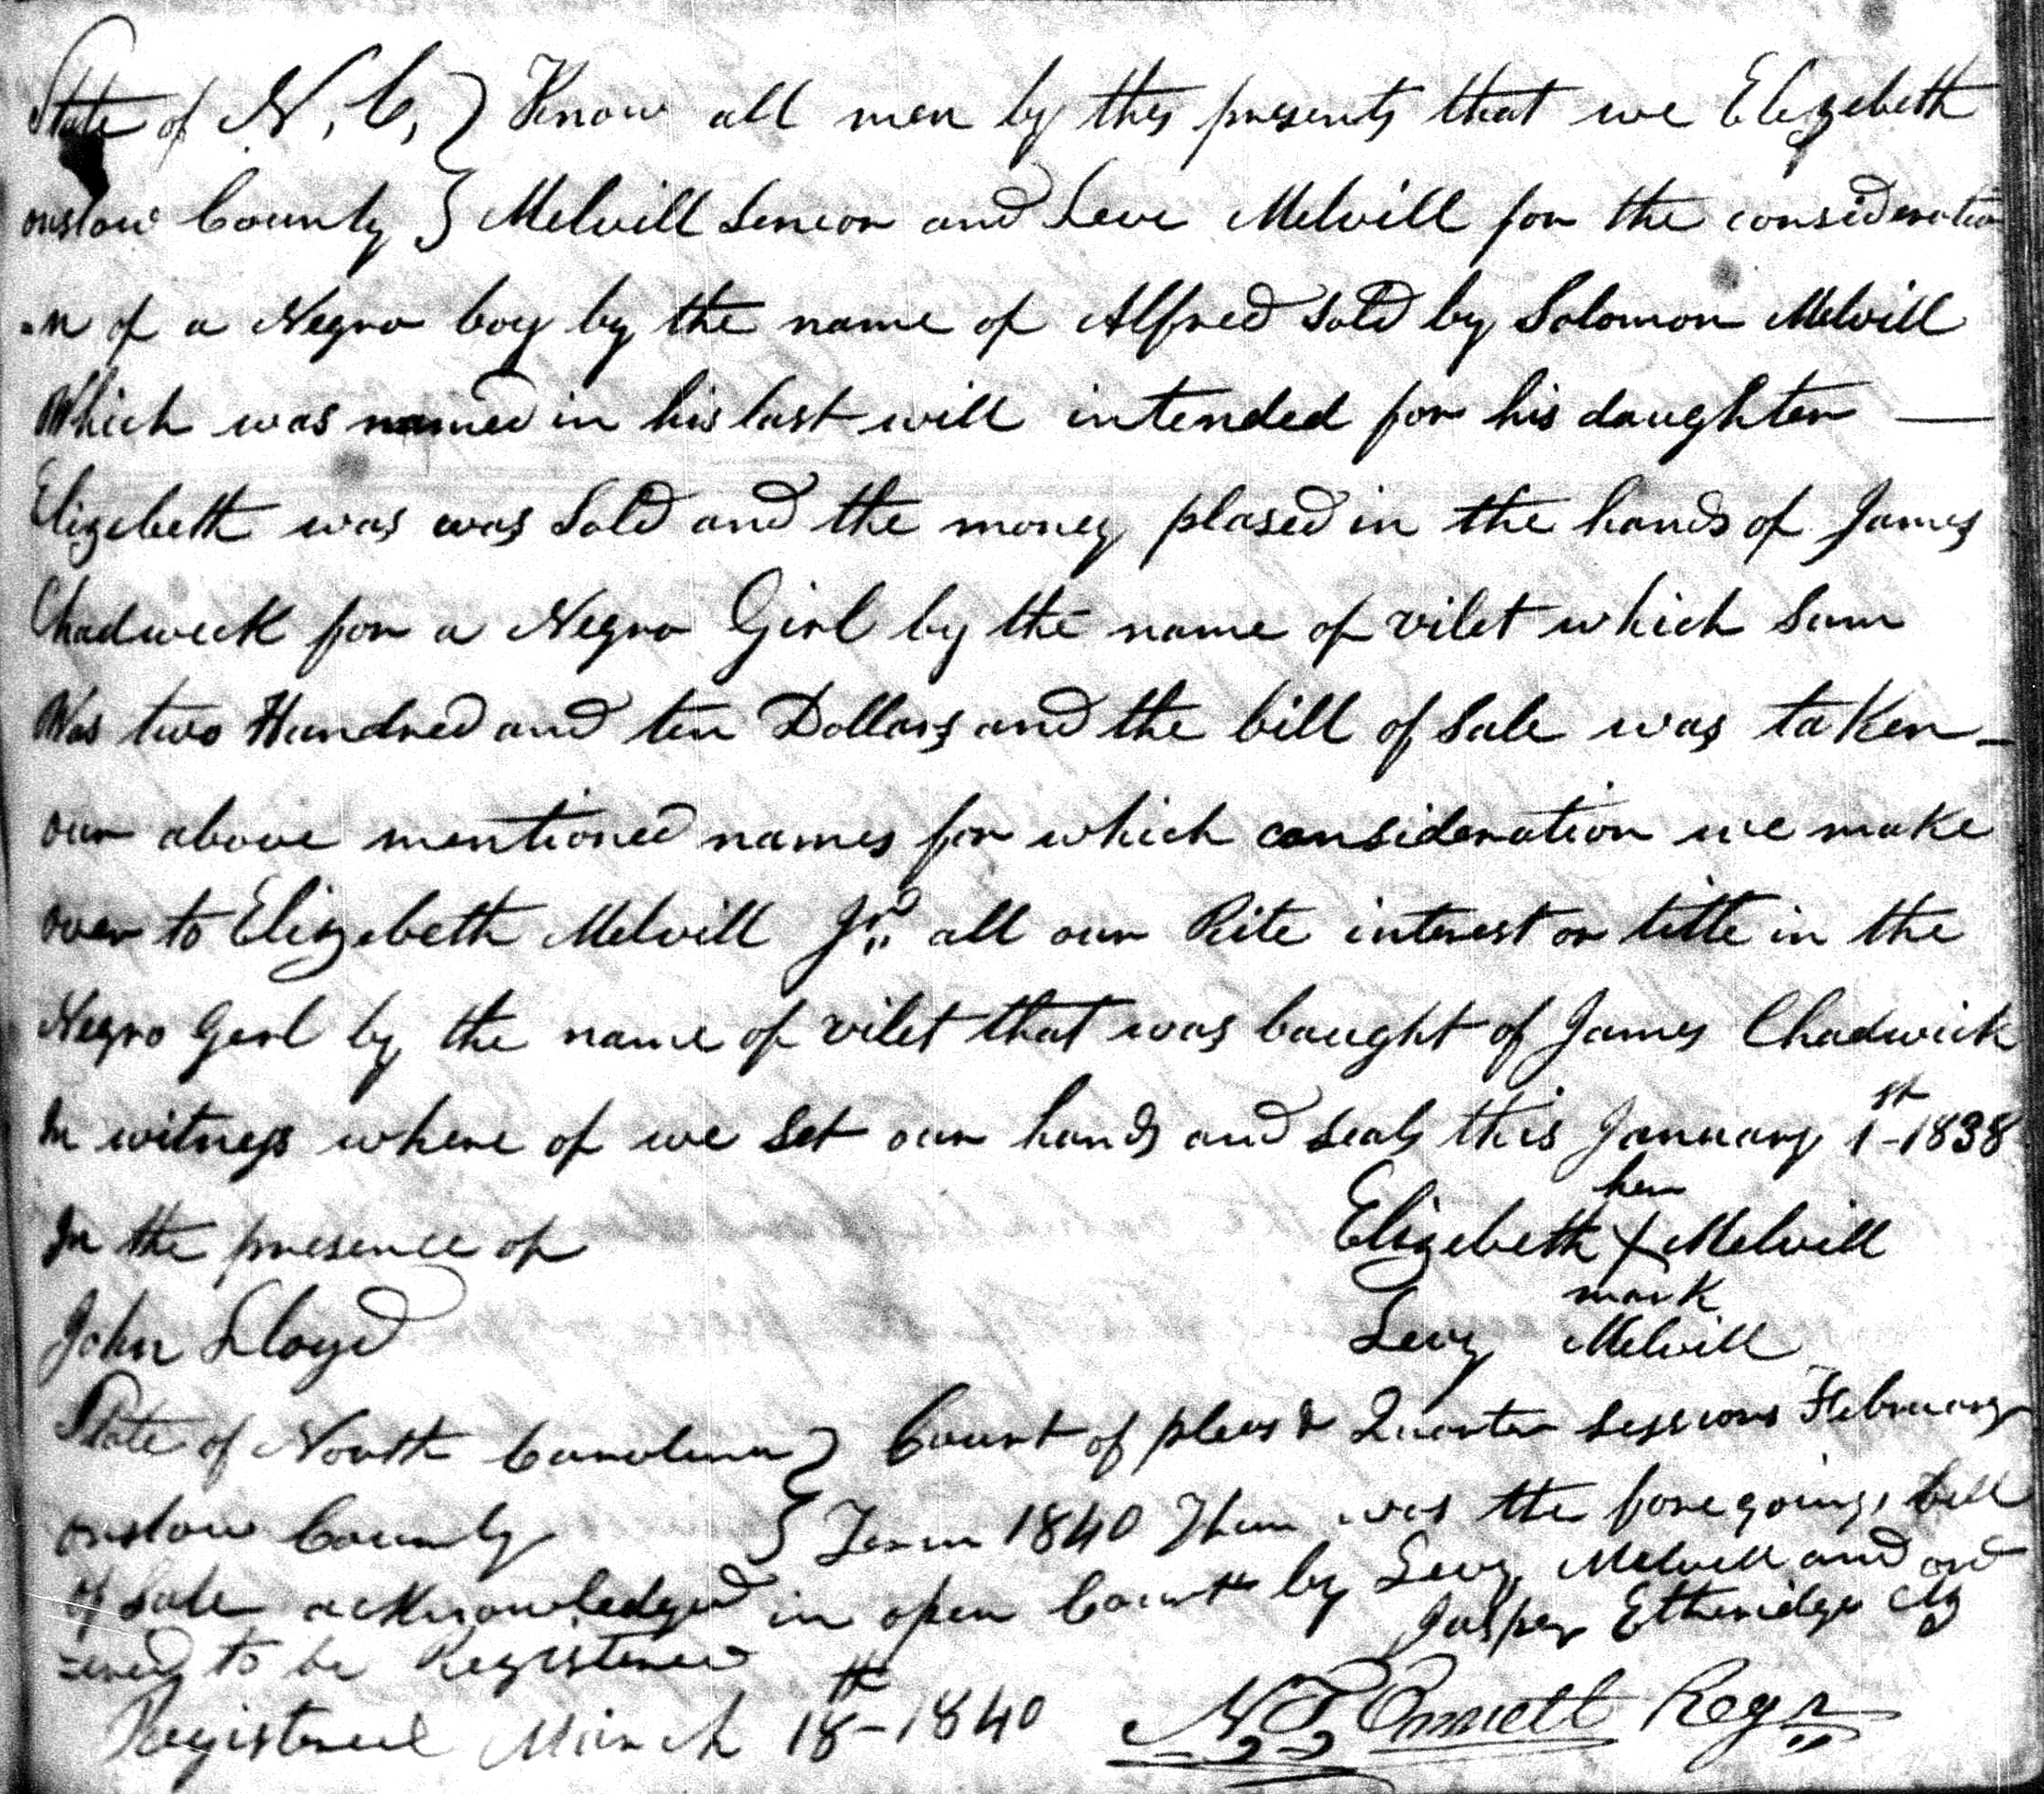 State of N. C, } Know all men by thes presents that we Elizebeth
onslow County } Melvill Senear and Leve Melvill for the consideratio
-n of a Negro boy by the name of Alfred Sold by Solomon Melvill
Which was named in his last will intended for his daughter —
Elizebeth was was Sold and the money plased in the hands of James
Chadwick for a Negro Girl by the name of vilet which Sum
Was two Hundred and ten Dollars and the bill of Sale was taken -
our above mentioned names for which consideration we make
over to Elizebeth Melvill Jr. all our Rite interest or title in the
Negro Gerl by the name of vilet that was baught of James Chadwick
In witness where of we Set our hands and seals this January 1st - 1838
her
In the presence of Elizebeth X Melvill
mark
John Lloyd Levy Melvill
State of North Carolina } Court of pleas & Quarter Sessions February
onslow County } Term 1840 Then was the foregoing bill
of Sale acknowledged in open Court by Levy Melvill and ord
=ered to be Registered Jasper Etheridge Clk
Registered March 18th - 1840 Regr